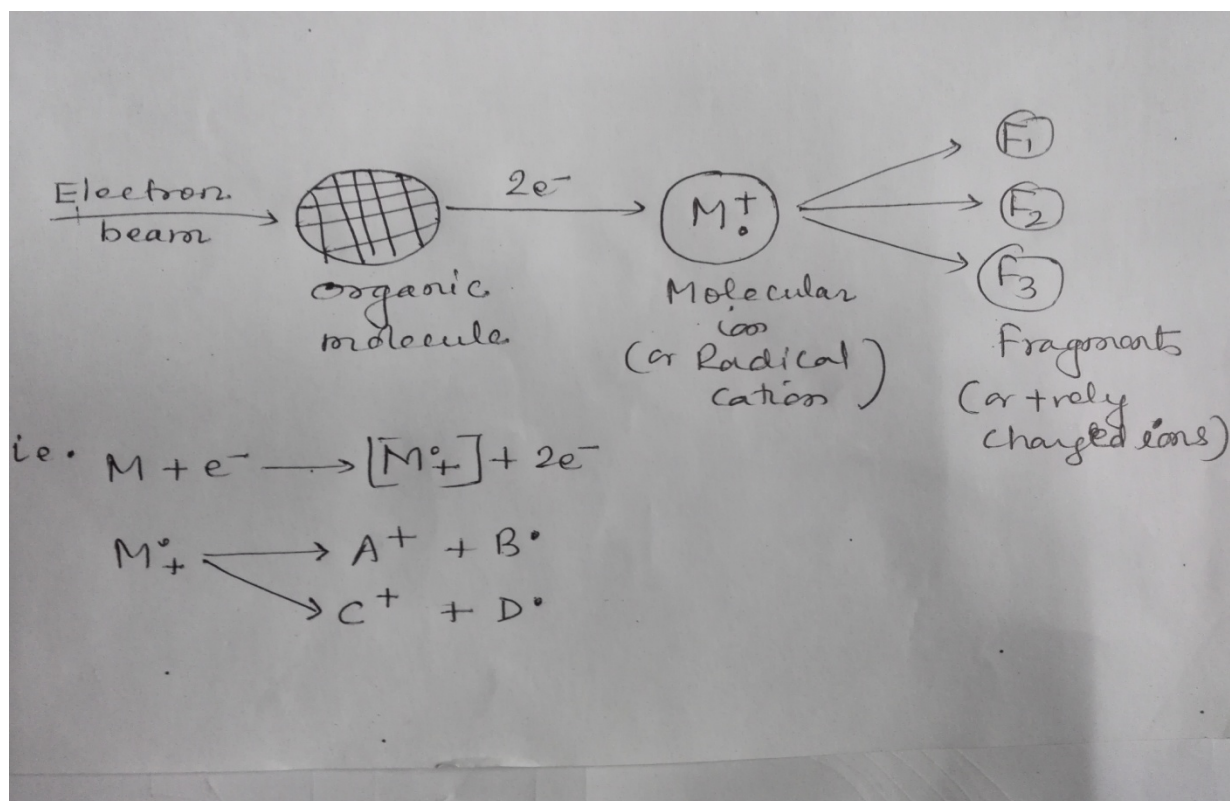 Electron
beam
organic
molecule
2e⁻
M⁺•
Molecular
ion
(or Radical
cation)
F₁
F₂
F₃
Fragments
(or +vely
charged ions)
ie. M + e⁻ ⟶ [M•+] + 2e⁻
M•+ ⟶ A⁺ + B•
⟶ C⁺ + D•